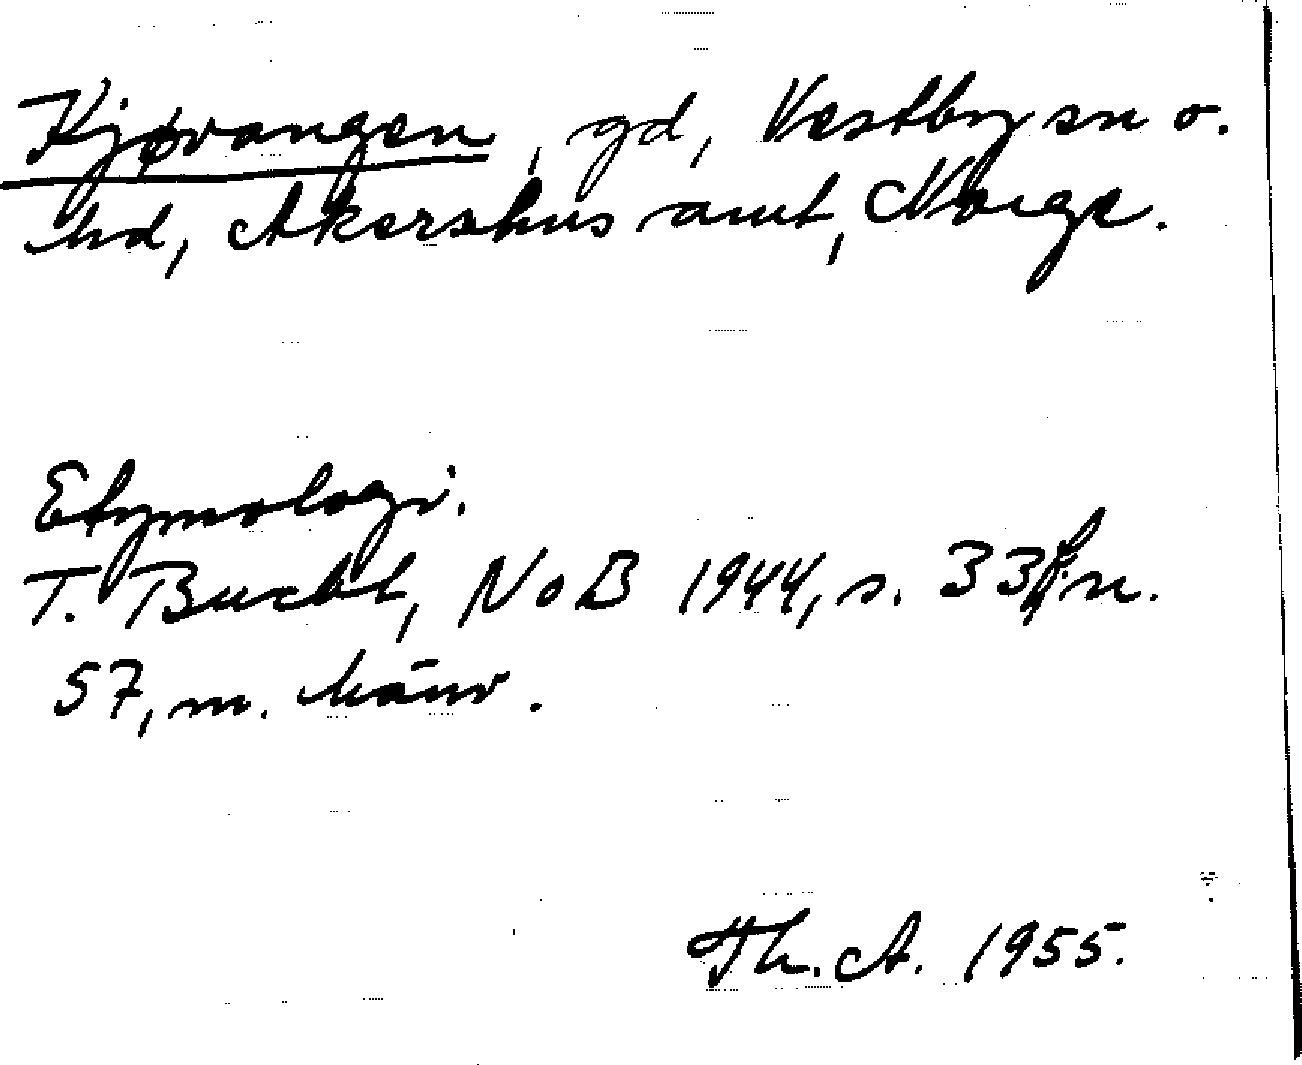 Kjøvangen, gd, Vestby sn o.
hd, Akershus amt, Norge.
Etymologi.
T. Bucht, NoB 1944, s. 33 fn.
57, m. hänv.
Th. A. 1955.